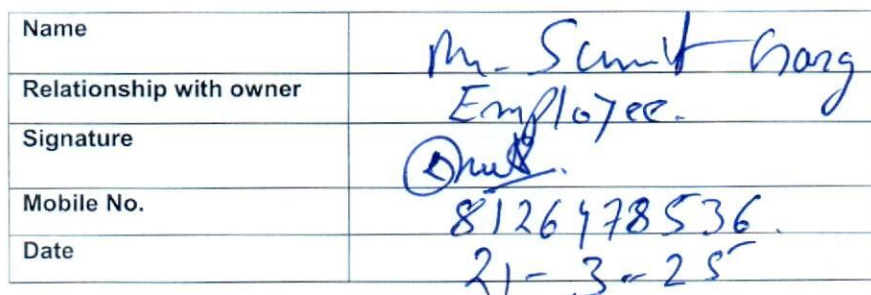 Name Mr. Sumit Garg
Relationship with owner Employee.
Signature
Mobile No. 8126478536.
Date 21-3-25